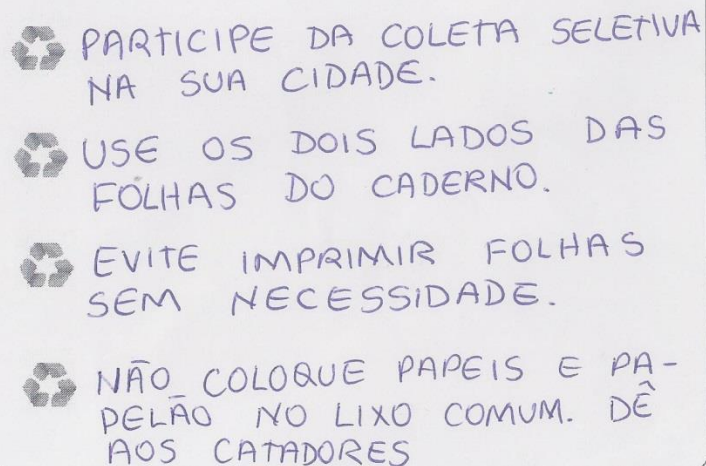 PARTICIPE DA COLETA SELETIVA
NA SUA CIDADE.
USE OS DOIS LADOS DAS
FOLHAS DO CADERNO.
EVITE IMPRIMIR FOLHAS
SEM NECESSIDADE.
NÃO COLOQUE PAPEIS E PA-
PELÃO NO LIXO COMUM. DÊ
AOS CATADORES